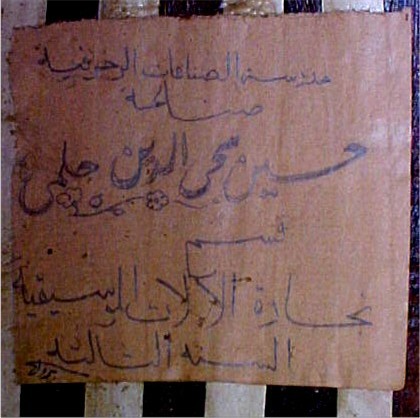 مدرسة الصناعات الزخرفية
صناعة
حسين محى الدين حلمى
قسم
نجارة الآلات الموسيقية
السنه الثالثه